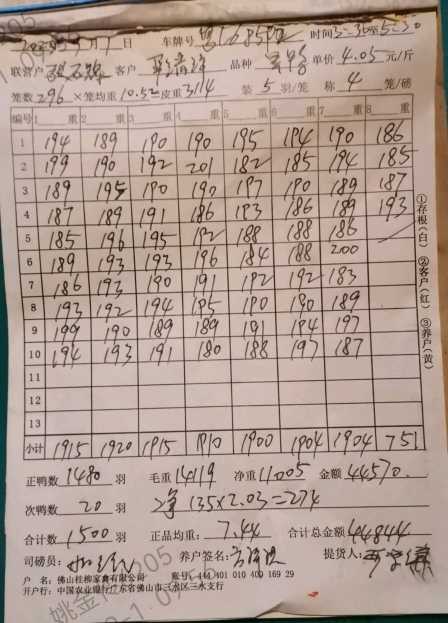 9月1日 车牌号 时间3-30至5-30
联营户 客户 品种 单价4.05元/斤
笼数296×笼均重10.52皮重3114 装5羽/笼 称4笼/磅
编号 1 重 2 重 3 重 4 重 5 重 6 重 7 重 8 重
1 194 189 190 190 195 194 190 186
2 199 190 192 201 182 185 194 185
3 189 195 190 190 197 190 189 187
4 187 189 191 186 193 186 189 193
5 185 196 195 192 188 188 186
6 189 193 193 196 184 188 200
7 186 193 190 191 192 192 183
8 193 192 194 195 190 190 189
9 199 190 189 189 191 194 197
10 194 193 191 180 188 197 187
11
12
13
小计 1915 1920 1915 1910 1900 1904 1904 751
①存根(白) ②客户(红) ③养户(黄)
正鸭数 1480 羽 毛重14119 净重11005 金额44570.
次鸭数 20 羽 净 135×2.03=274
合计数 1500 羽 正品均重: 7.44 合计总金额44844
司磅员: 养户签名: 提货人:
户 名: 佛山桂柳家禽有限公司 账号: 444 401 010 400 169 29
开户行: 中国农业银行广东省佛山市三水区三水支行